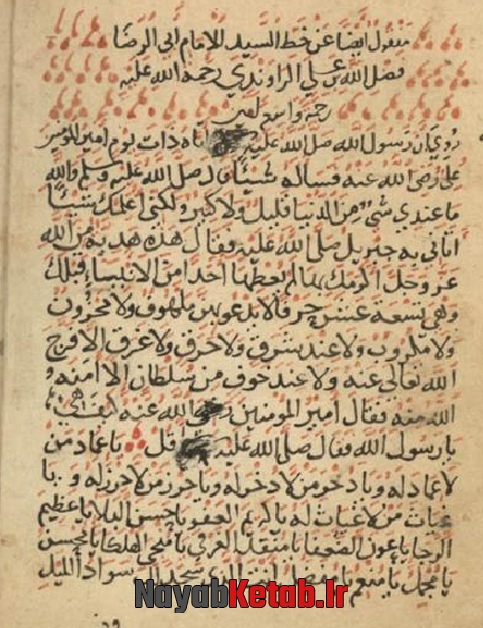 منقول ايضا عن خط السيد للامام ابى الرضا
فضل الله بن علي الراوندي رحمة الله عليه
رحمة واسعة
روي ان رسول الله صلى الله عليه اتاه ذات يوم امير المومنين
علي رضى الله عنه فساله شيئا فقال صلى الله عليه وسلم والله
ما عندي شي من الدنيا قليل ولا كثير ولكنى اعلمك شيئا
اتانى به جبريل صلى الله عليه فقال هذه هدية من الله
عز وجل اكرمك بها لم يعطها احدا من الانبياء قبلك
وهى تسعة عشر حرفا لا يدعو بهن ملهوف ولا محزون
ولا مكروب ولا عند سرق ولا حرق ولا غرق الا فرج
الله تعالى عنه ولا عند خوف من سلطان الا امنه
الله منه فقال امير المومنين رضي الله عنه كيف هي
يا رسول الله فقال صلى الله عليه قل يا عماد من
لا عماد له ويا ذخر من لا ذخر له ويا حرز من لا حرز له ويا
غياث من لا غياث له يا كريم العفو يا حسن البلا يا عظيم
الرجا يا عون الضعفا يا منقذ الغرقي يا منجي الهلكا يا محسن
يا مجمل يا منعم يا مفضل انت الذي سجد لك سواد الليل
NayabKetab.Ir